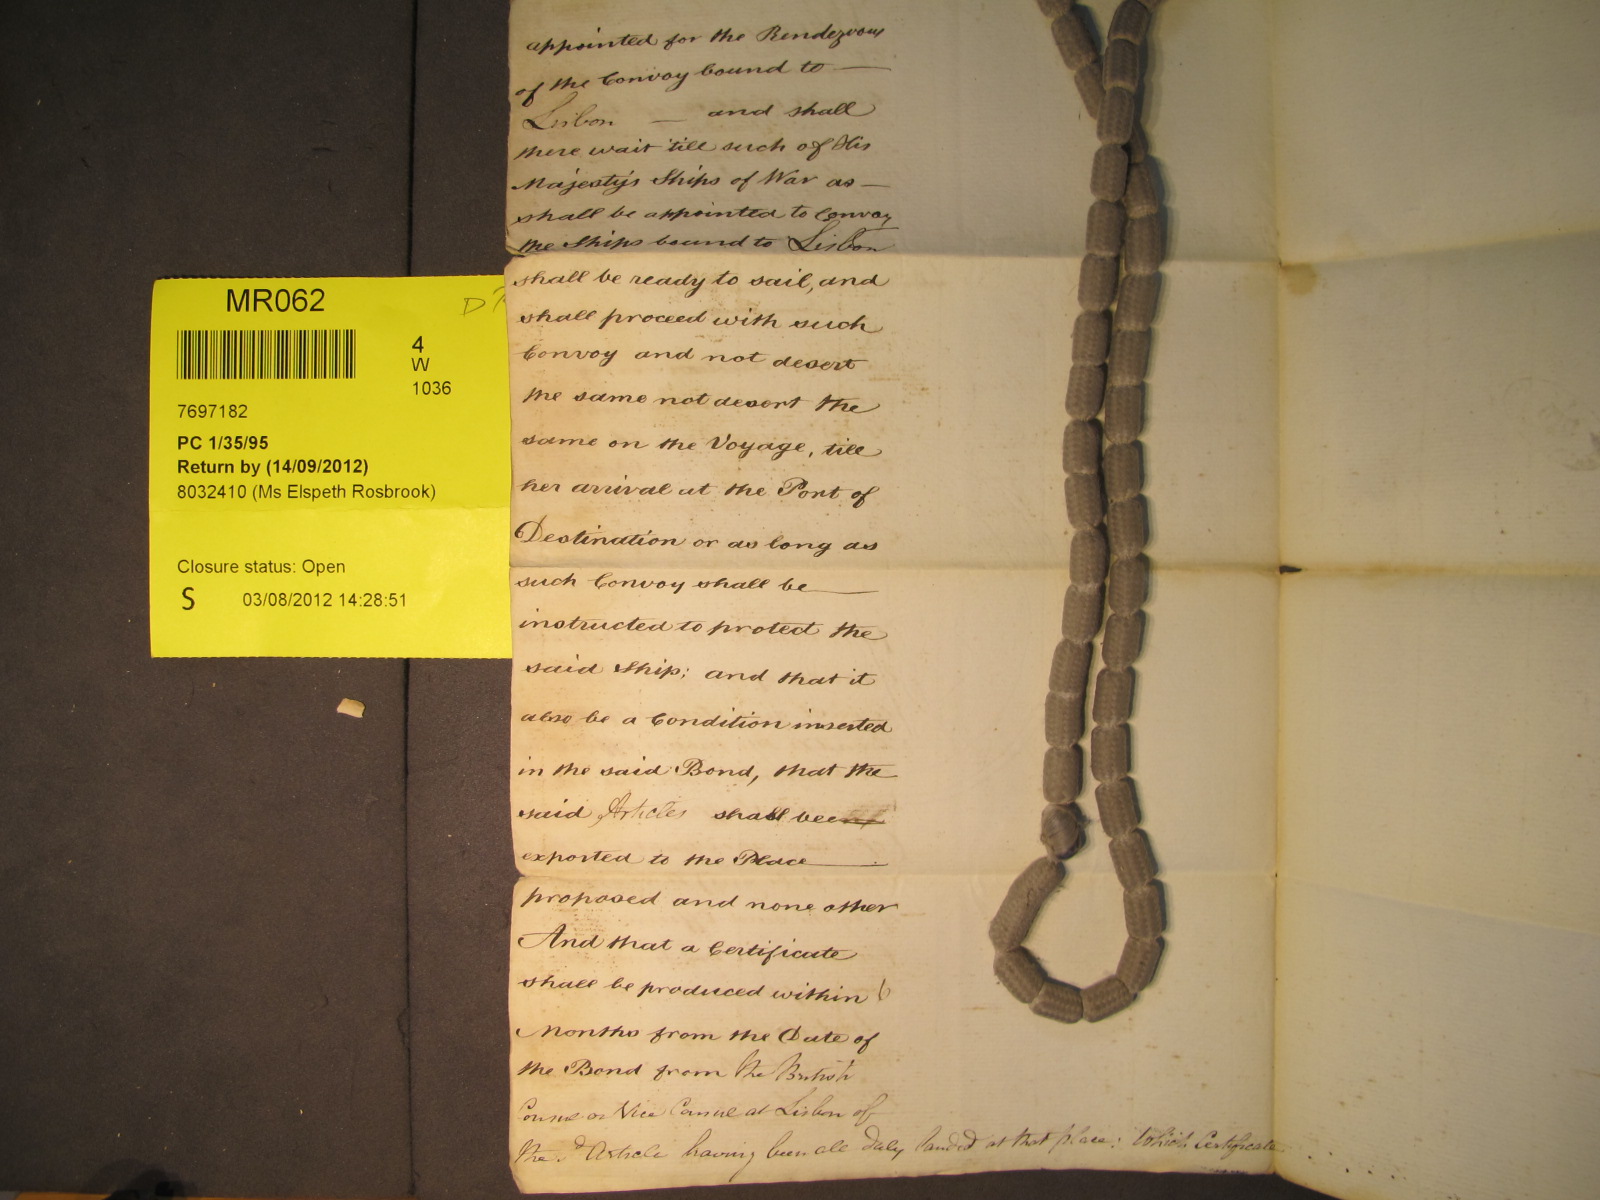 MR062
4
W
1036
7697182
PC 1/35/95
Return by (14/09/2012)
8032410 (Ms Elspeth Rosbrook)
Closure status: Open
S 03/08/2012 14:28:51
appointed for the Rendezvous
of the Convoy bound to
Lisbon — and shall
there wait 'till such of His
Majesty's Ships of War as
shall be appointed to Convoy
the Ships bound to Lisbon
shall be ready to sail, and
shall proceed with such
Convoy and not desert
the same not desert the
same on the Voyage, till
her arrival at the Port of
Destination or as long as
such Convoy shall be
instructed to protect the
said Ship; and that it
also be a Condition inserted
in the said Bond, that the
said Articles shall be
exported to the Place
proposed and none other
And that a Certificate
shall be produced within 6
Months from the Date of
the Bond from the British
Consul or Vice Consul at Lisbon of
the sd Article having been all duly landed at that place: Which Certificate